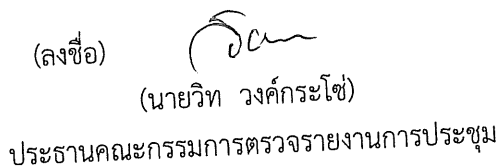 (ลงชื่อ)
(นายวิท วงค์กระโซ่)
ประธานคณะกรรมการตรวจรายงานการประชุม